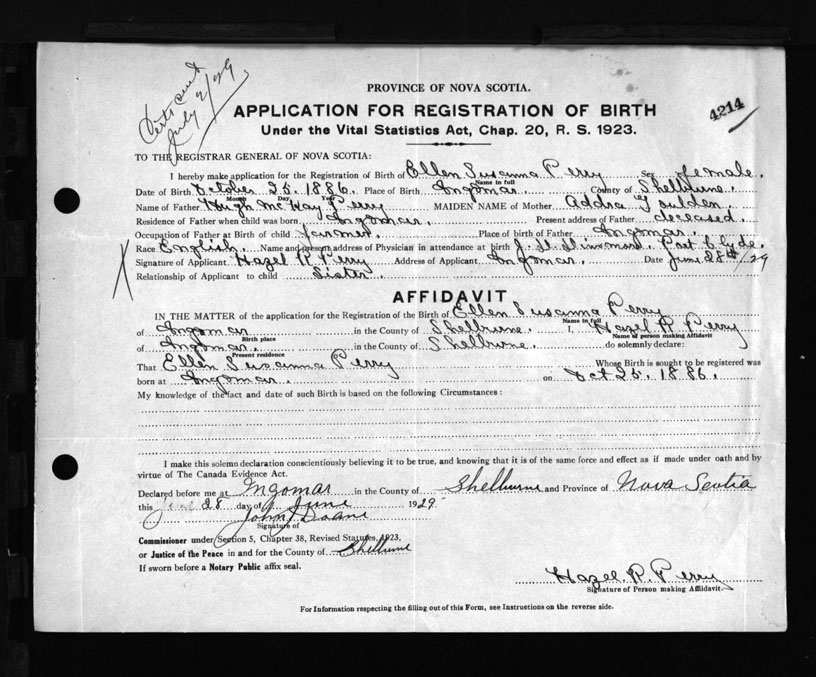 Certs sent
July 2/29
PROVINCE OF NOVA SCOTIA.
4214
APPLICATION FOR REGISTRATION OF BIRTH
Under the Vital Statistics Act, Chap. 20, R. S. 1923.
TO THE REGISTRAR GENERAL OF NOVA SCOTIA:
I hereby make application for the Registration of Birth of Ellen Susanna Perry Sex female.
Name in full
Date of Birth October 25. 1886. Place of Birth Ingomar. County of Shelburne.
Month Day Year
Name of Father Hugh McKay Perry MAIDEN NAME of Mother Addra Goulden.
Residence of Father when child was born, Ingomar. Present address of Father deceased.
Occupation of Father at Birth of child farmer. Place of birth of Father Ingomar.
Race English. Name and present address of Physician in attendance at birth Port Clyde.
Signature of Applicant Hazel R Perry Address of Applicant Ingomar. Date June 28th/29
Relationship of Applicant to child Sister.
AFFIDAVIT
IN THE MATTER of the application for the Registration of the Birth of Ellen Susanna Perry
Name in full
of Ingomar in the County of Shelburne. I, Hazel R Perry
Birth place Name of person making Affidavit
of Ingomar. in the County of Shelburne. do solemnly declare:
Present residence
That Ellen Susanna Perry Whose Birth is sought to be registered was
born at Ingomar. on Oct 25. 1886.
My knowledge of the fact and date of such Birth is based on the following Circumstances:
I make this solemn declaration conscientiously believing it to be true, and knowing that it is of the same force and effect as if made under oath and by
virtue of The Canada Evidence Act.
Declared before me at Ingomar in the County of Shelburne and Province of Nova Scotia
this 28 day of June 1929
John Doane
Signature of
Commissioner under Section 5, Chapter 38, Revised Statutes, 1923,
or Justice of the Peace in and for the County of Shelburne
If sworn before a Notary Public affix seal.
Hazel. R. Perry
Signature of Person making Affidavit.
For Information respecting the filling out of this Form, see Instructions on the reverse side.